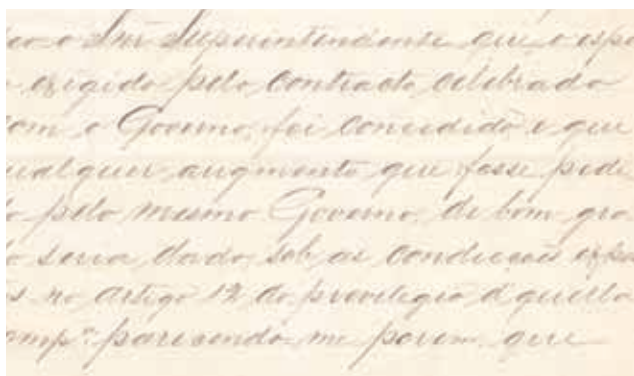 o Snr Superintendente que o espa
exigido pelo contracto celebrado
com o Governo, foi concedido e que
ualquer augmento que fosse pedi
o pelo mesmo Governo, de bom gra
o seria dado sob as condicões expos
as no artigo 12 do previlegio d'quella
omp.ª parecendo me porem, que